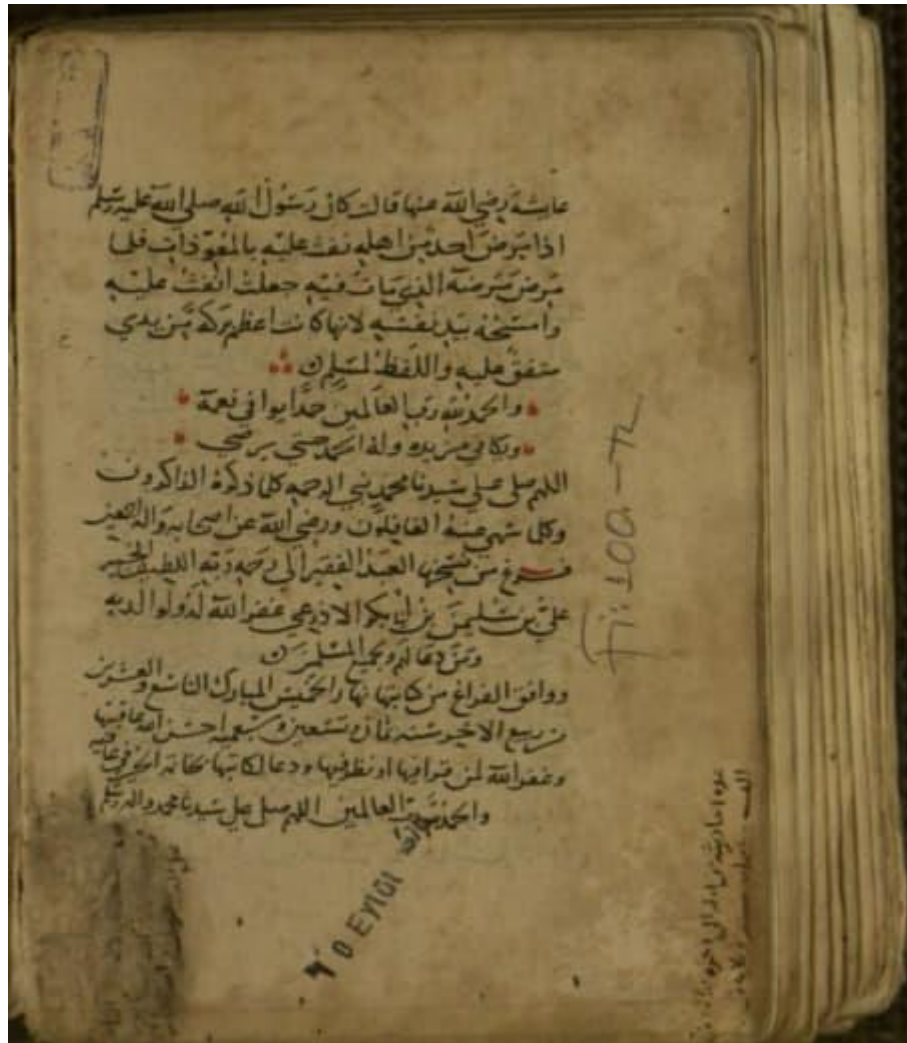 عايشة رضي الله عنها قالت كان رسول الله صلى الله عليه وسلم
اذا مرض احد من اهله نفث عليه بالمعوذات فلما
مرض مرضه الذي مات فيه جعلت انفث عليه
وامسحه بيد نفسه لانها كانت اعظم بركة من يدي
متفق عليه واللفظ لمسلم
والحمد لله رب العالمين حمدا يوافي نعمه
ويكافي مزيده وله الحمد حتى يرضى
اللهم صلى على سيدنا محمد نبي الرحمه كلما ذكره الذاكرون
وكلما سهى عنه الغافلون ورضي الله عن اصحابه واله اجمعين
فرغ من نسخها العبد الفقير الى رحمه ربه اللطيف الخبير
علي بن سليمن بن ابي بكر الاذرعي غفر الله له ولوالديه
ومن دعا لهم ولجميع المسلمين
ووافق الفراغ من كتابتها نهار الخميس المبارك التاسع والعشرين
من ربيع الاخر سنه ثمان وتسعين وسبعمايه احسن الله عاقبتها
وغفر الله لمن قرا فيها او نظر فيها ودعا لكاتبها
والحمد لله رب العالمين اللهم صل على سيدنا محمد واله وسلم
EYLÜL
Fi: 100.-TL
عدة احاديثه من اوله الى اخره